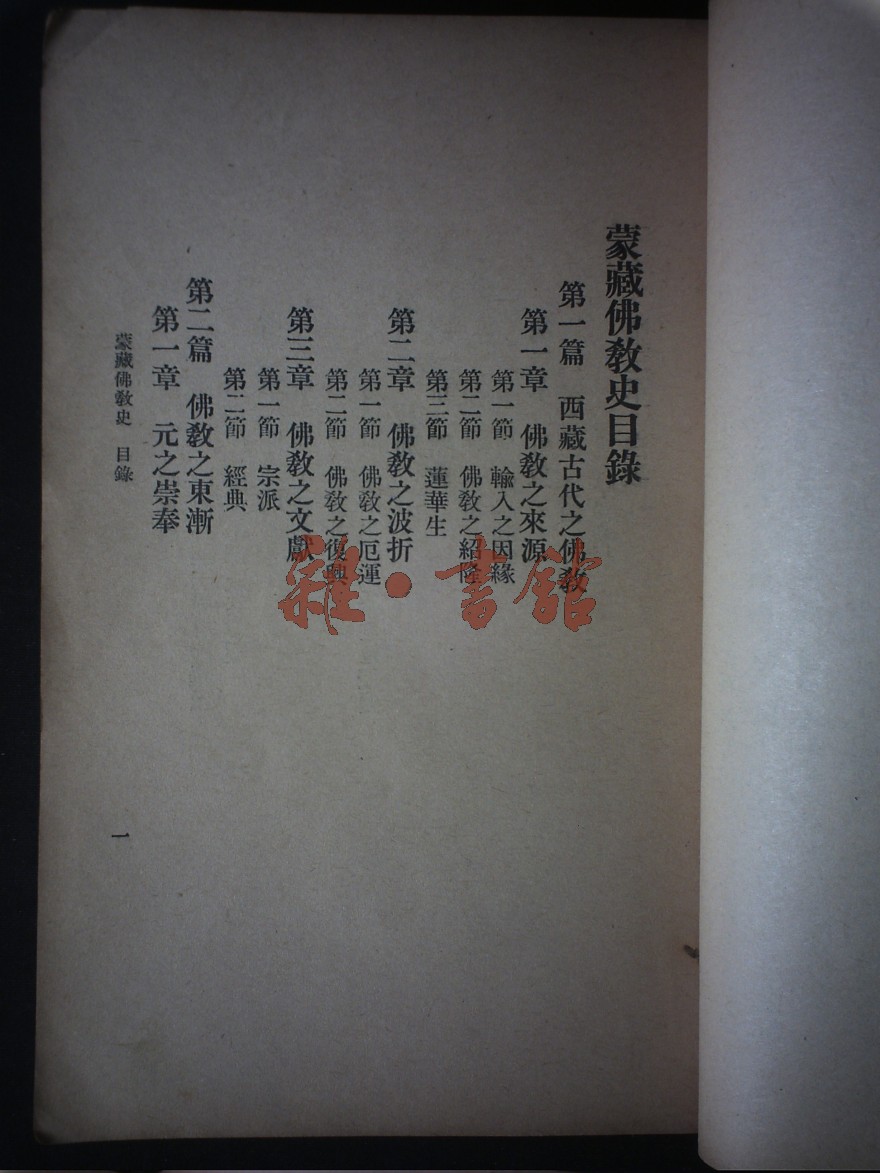 蒙藏佛教史目錄
第一篇　西藏古代之佛教
第一章　佛教之來源
第一節　輸入之因緣
第二節　佛教之紹隆
第三節　蓮華生
第二章　佛教之波折
第一節　佛教之厄運
第二節　佛教之復興
第三章　佛教之文獻
第一節　宗派
第二節　經典
第二篇　佛教之東漸
第一章　元之崇奉
蒙藏佛教史　目錄
一
雜·書館